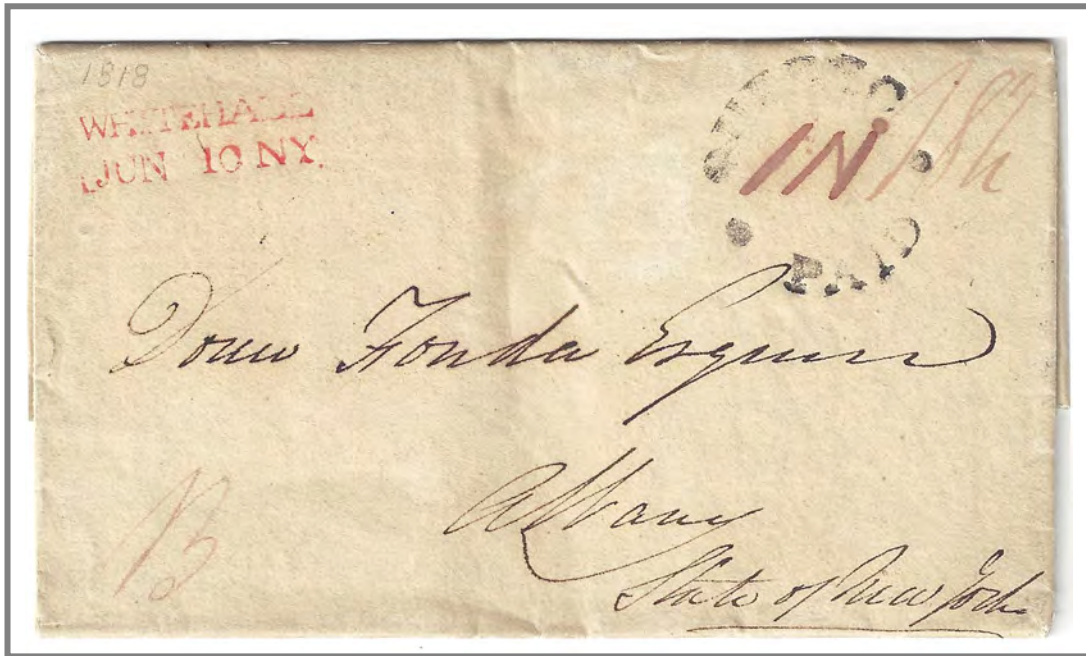 1818
WHITEHALL
JUN 10 NY.
QUEBEC
PAID
1N
Douw Fonda Esquire
Albany
State of New York